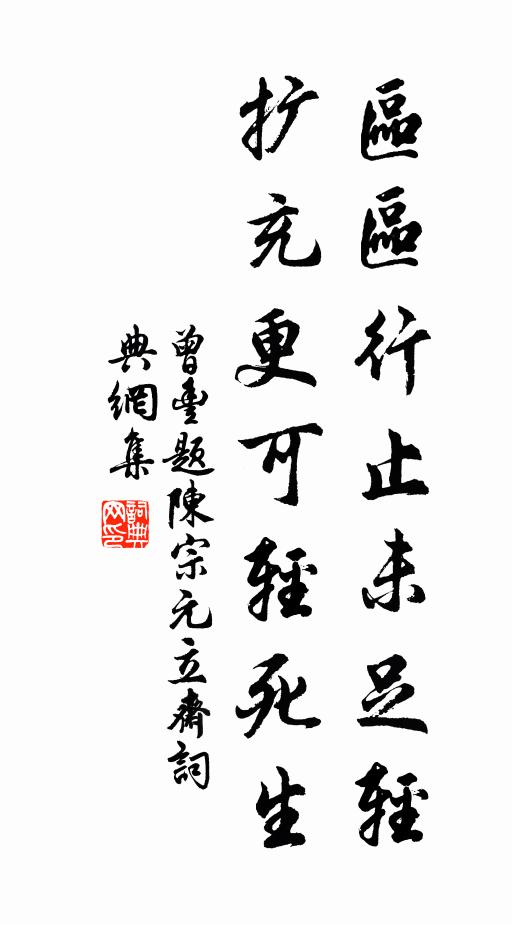 區區行止未足輕
扩充更可輕死生
曾豊題陳宗元立齋詞
典網集
詞典网印